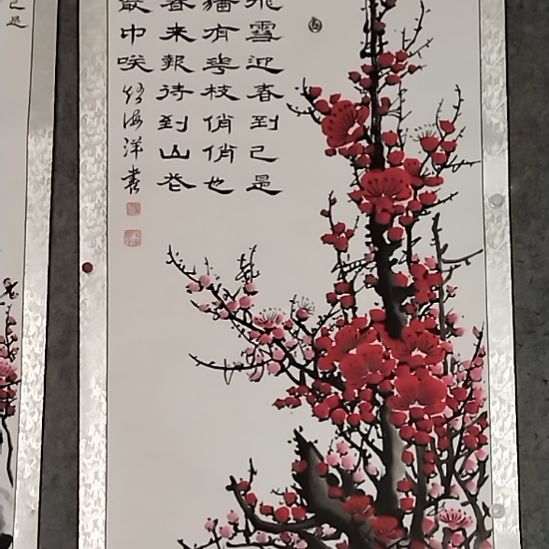 飛雪迎春到已是
猶有華枝俏俏也
春来報待到山花
叢中咲 海洋書
已是